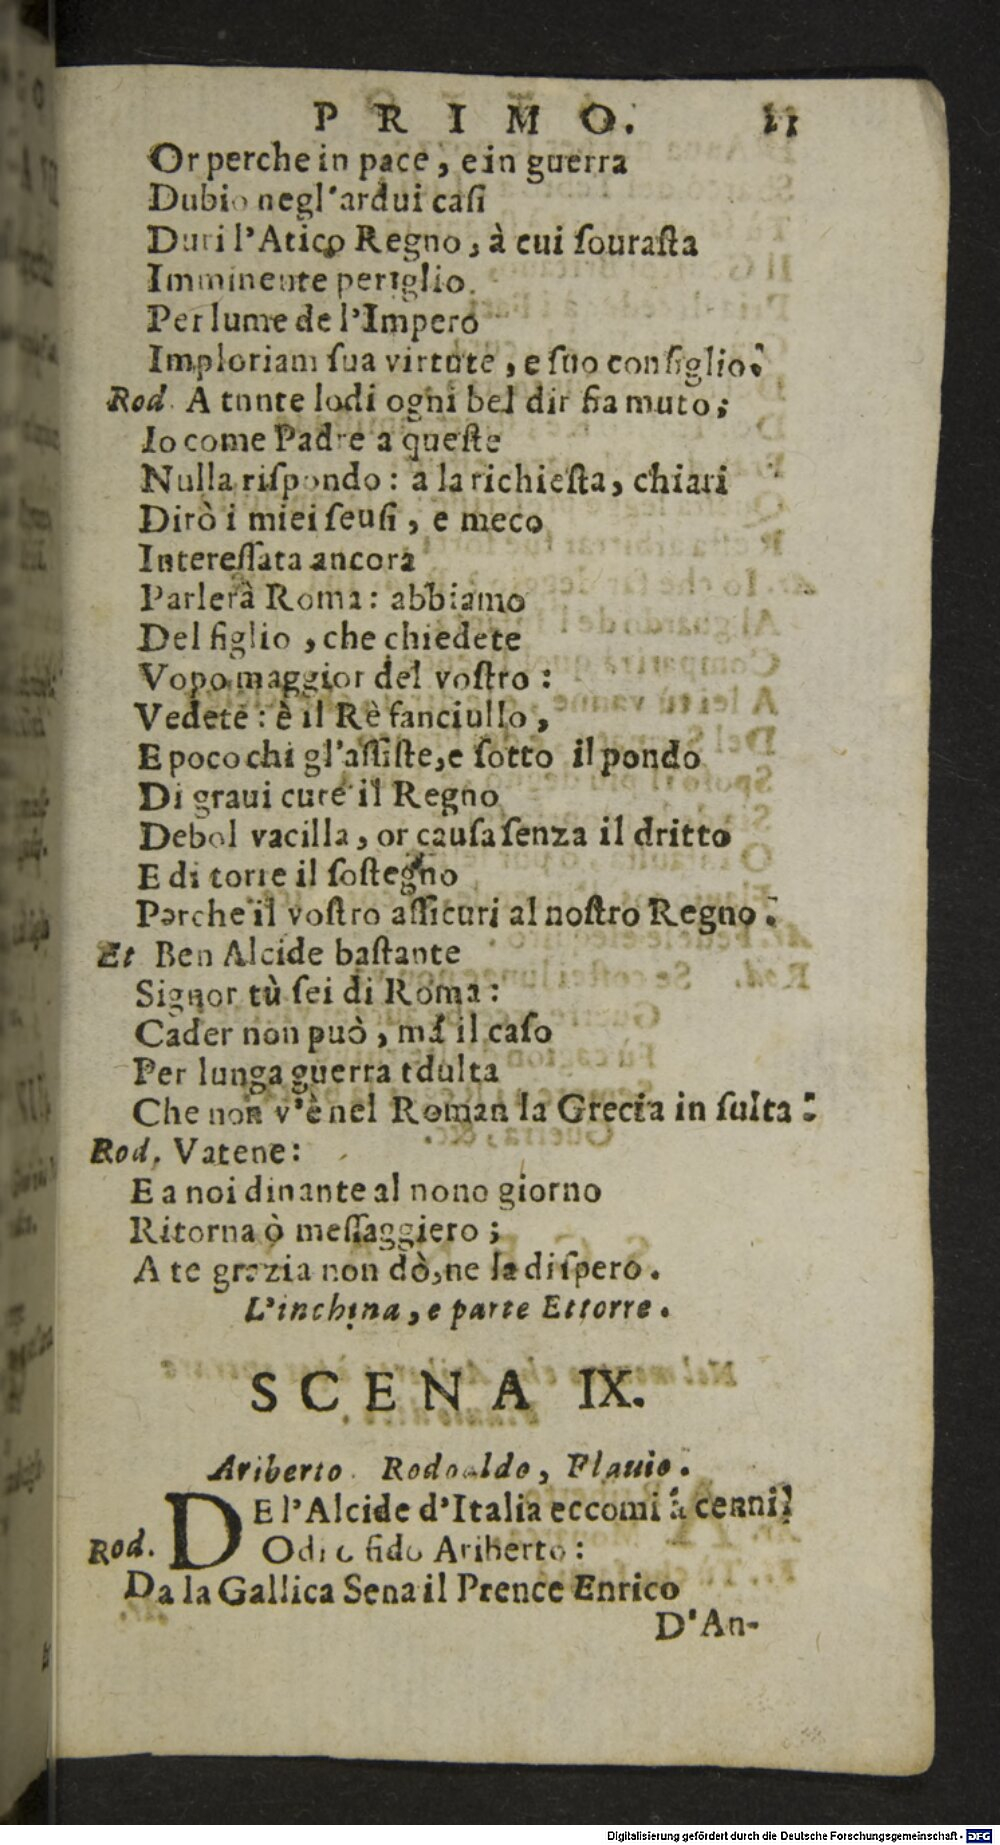 PRIMO. 21
Or perche in pace, e in guerra
Dubio negl'ardui casi
Duri l'Atico Regno, à cui sourasta
Imminente periglio.
Per lume de l'Impero
Imploriam sua virtute, e suo consiglio.
Rod. A tnnte lodi ogni bel dir fia muto;
Io come Padre a queste
Nulla rispondo: a la richiesta, chiari
Dirò i miei seusi, e meco
Interessata ancora
Parlerà Roma: abbiamo
Del figlio, che chiedete
Vopo maggior del vostro:
Vedete: è il Rè fanciullo,
E poco chi gl'assiste, e sotto il pondo
Di graui cure il Regno
Debol vacilla, or causa senza il dritto
E di torre il sostegno
Perche il vostro assicuri al nostro Regno.
Et Ben Alcide bastante
Signor tù sei di Roma:
Cader non può, mà il caso
Per lunga guerra tdulta
Che non v'è nel Roman la Grecia in sulta.
Rod. Vatene:
E a noi dinante al nono giorno
Ritorna ò messaggiero;
A te grazia non dò, ne la dispero.
L'inchina, e parte Ettorre.
SCENA IX.
Ariberto. Rodoaldo, Flauio.
DE l'Alcide d'Italia eccomi à cenni!
Rod. Odi o fido Ariberto:
Da la Gallica Sena il Prence Enrico
D'An-
Digitalisierung gefördert durch die Deutsche Forschungsgemeinschaft - DFG